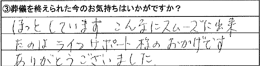 ③葬儀を終えられた今のお気持ちはいかがですか？
ほっとしています こんなにスムーズに出来
たのはライフサポート様のおかげです
ありがとうございました。